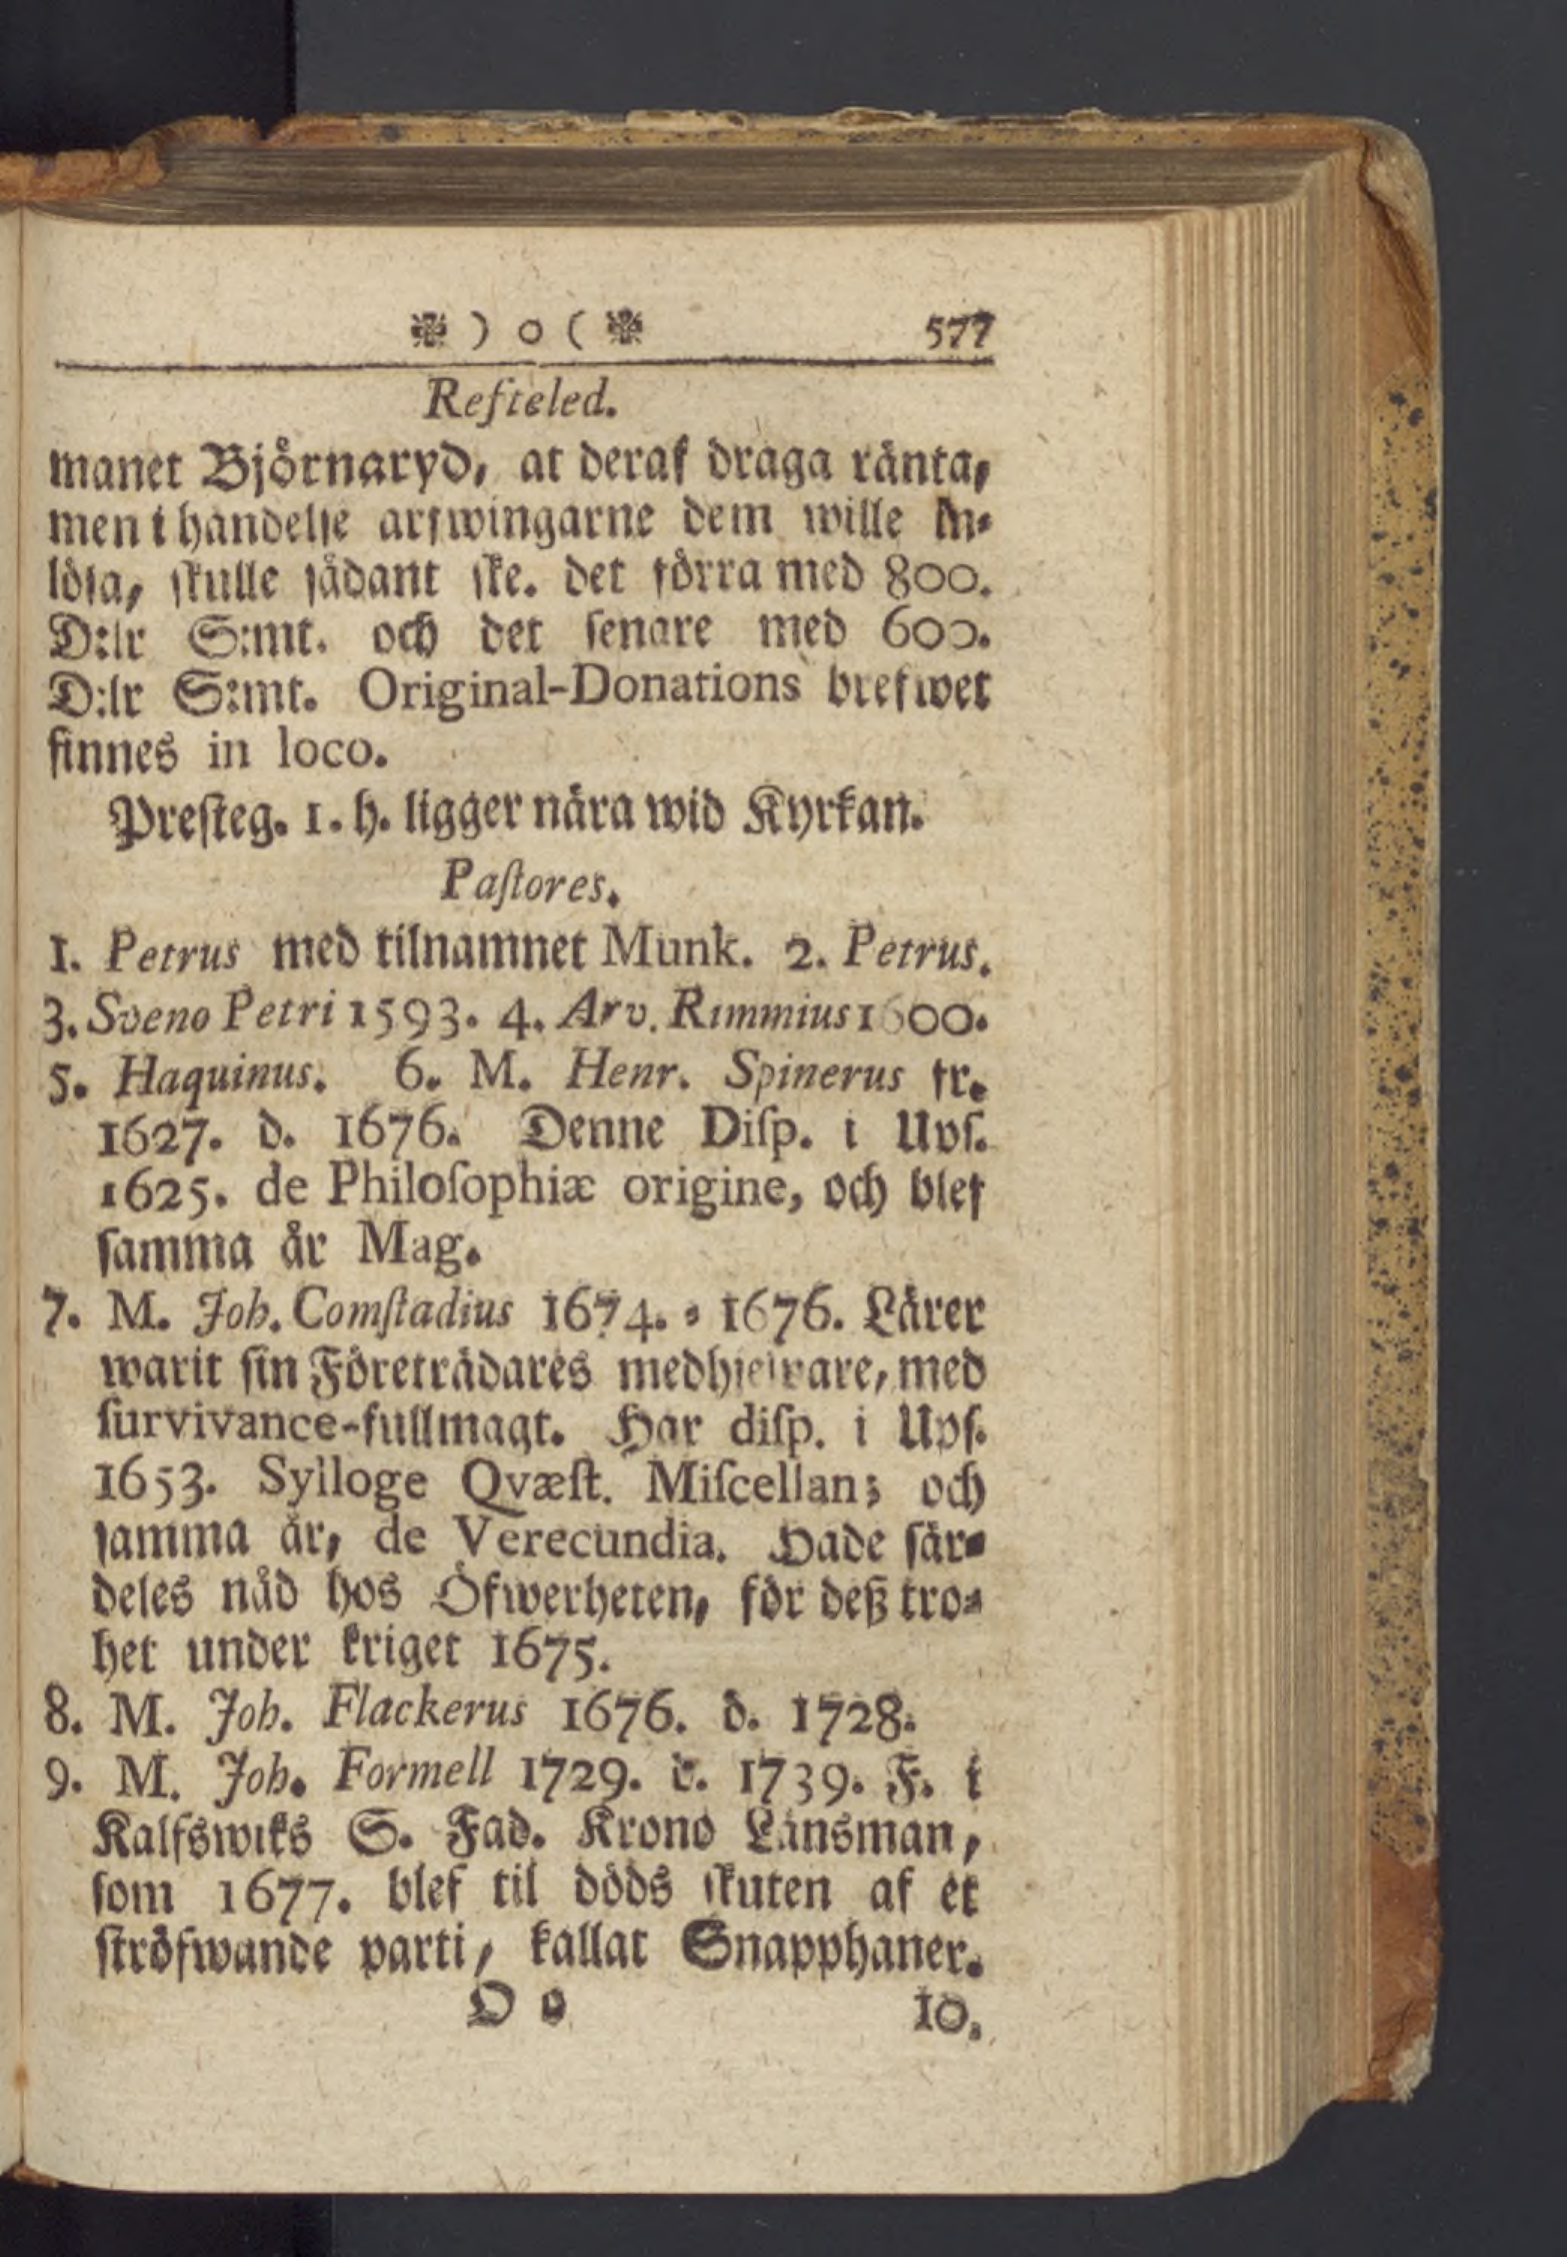 ❋ ) o ( ❋ 577
Reſteled.
manet Björnaryd, at deraf draga ränta,
men i händelſe arfwingarne dem wille in-
löſa, ſkulle ſådant ſke. det förra med 800.
D:lr S:mt. och det ſenare med 600.
D:lr S:mt. Original-Donations brefwet
finnes in loco.
Preſteg. 1. h. ligger nära wid Kyrkan.
Paſtores.
1. Petrus med tilnamnet Munk. 2. Petrus.
3. Sveno Petri 1593. 4. Arv. Rimmius 1600.
5. Haquinus. 6. M. Henr. Spinerus fr.
1627. d. 1676. Denne Diſp. i Upſ.
1625. de Philoſophiæ origine, och blef
ſamma år Mag.
7. M. Joh. Comſtadius 1674. - 1676. Lärer
warit ſin Företrädares medhjelpare, med
ſurvivance-fullmagt. Har diſp. i Upſ.
1653. Sylloge Qvæſt. Miſcellan; och
ſamma år, de Verecundia. Hade ſär-
deles nåd hos Öfwerheten, för deß tro-
het under kriget 1675.
8. M. Joh. Flackerus 1676. d. 1728.
9. M. Joh. Formell 1729. d. 1739. F. i
Kalfswiks S. Fad. Krono Länsman,
ſom 1677. blef til döds ſkuten af et
ſtröfwande parti, kallat Snapphaner.
O o 10.